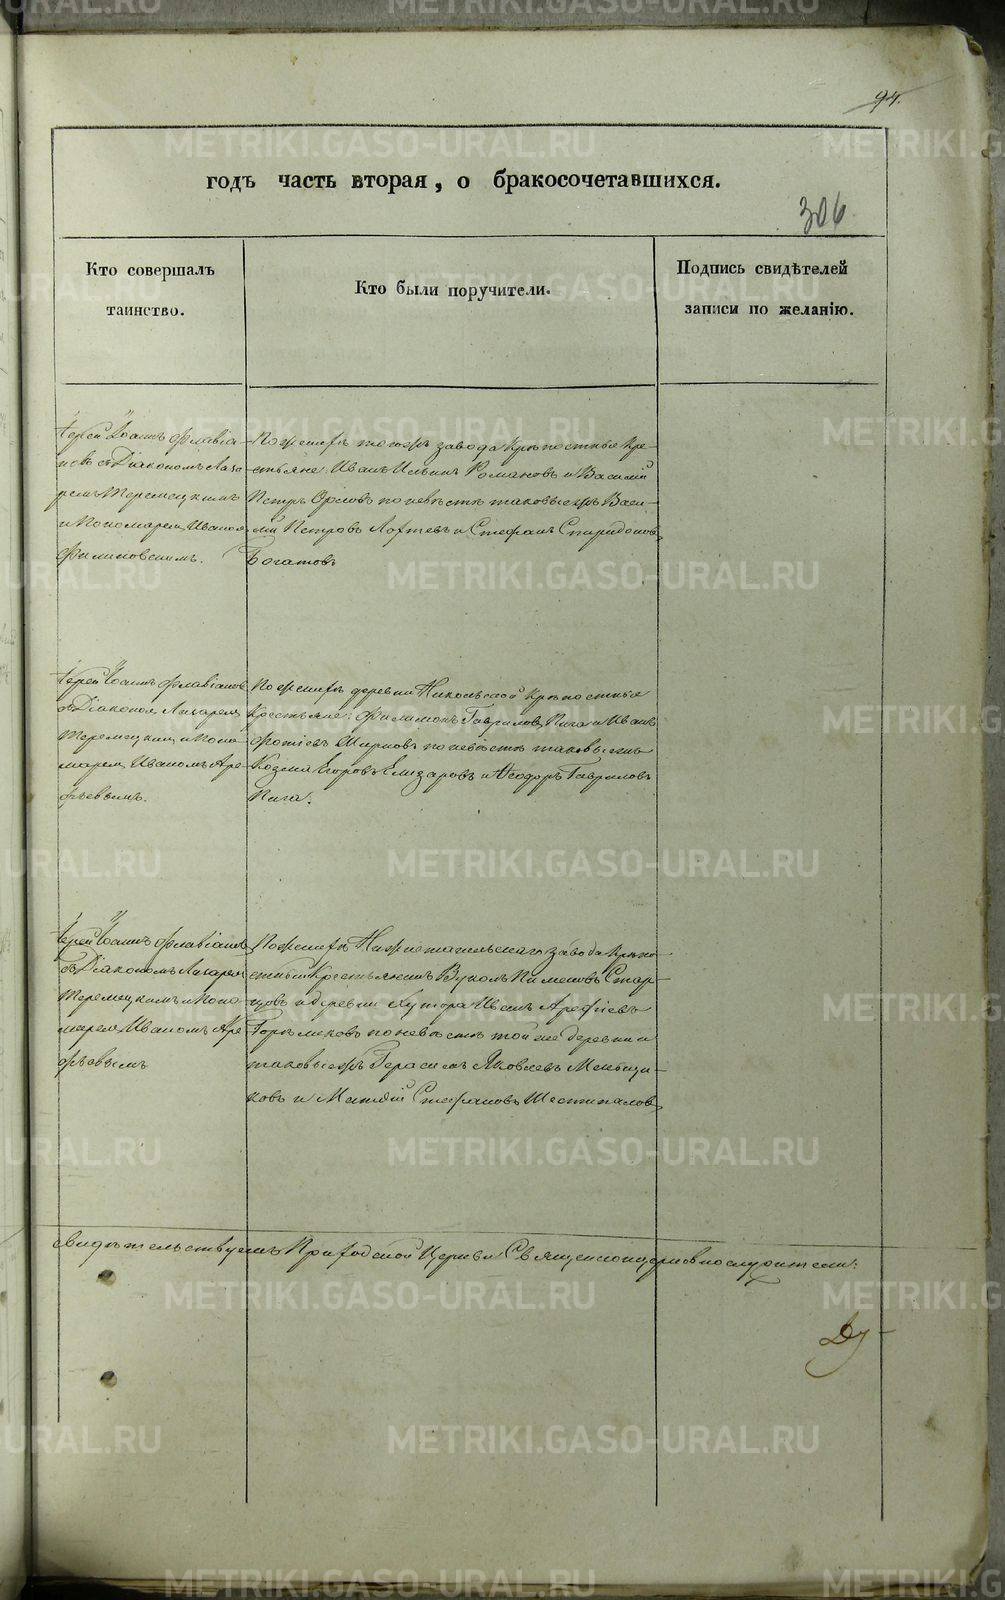 94.
годъ часть вторая, о бракосочетавшихся.
306
Кто совершалъ
таинство.
Кто были поручители.
Подпись свидѣтелей
записи по желанію.
Іерей Іоаннъ Флавіа-
новъ съ Діакономъ Лаза-
ремъ
и Пономаремъ Иваномъ
Филиновскимъ.
По женихѣ тогожъ завода Крѣпостные Кре-
стьяне: Иванъ Ильинъ Романовъ и Василій
Петръ Орловъ по невѣстѣ таковыежъ Васи-
лій Петровъ Лаптевъ и Стефанъ Спиридоновъ
Богатовъ
Іерей Іоаннъ Флавіановъ
съ Діакономъ Лазаремъ
и Поно-
маремъ Иваномъ Аре-
фьевымъ.
По женихѣ деревни Никольской Крѣпостные
Крестьяне: Филимонъ Гавриловъ Пига и Иванъ
Фотіевъ Ширковъ по невѣстѣ таковыежъ
Козма Егоровъ Елизаровъ и Ѳеодоръ Гавриловъ
Пига.
Іерей Іоаннъ Флавіановъ
съ Діакономъ Лазаремъ
и Поно-
маремъ Иваномъ Аре-
фьевымъ
По женихѣ Нижнетагильскаго завода Крѣпо-
стный Крестьянинъ Вуколъ Пименовъ Стар-
цовъ и деревни Хутора Иванъ Арефіевъ
по невѣстѣ той же деревни и
таковыежъ Герасимъ Яковлевъ
ковъ и Матвій Стефановъ Шестипаловъ
свидѣтельствуемъ Приходской Церкви Священноцерковнослужители:
METRIKI.GASO-URAL.RU